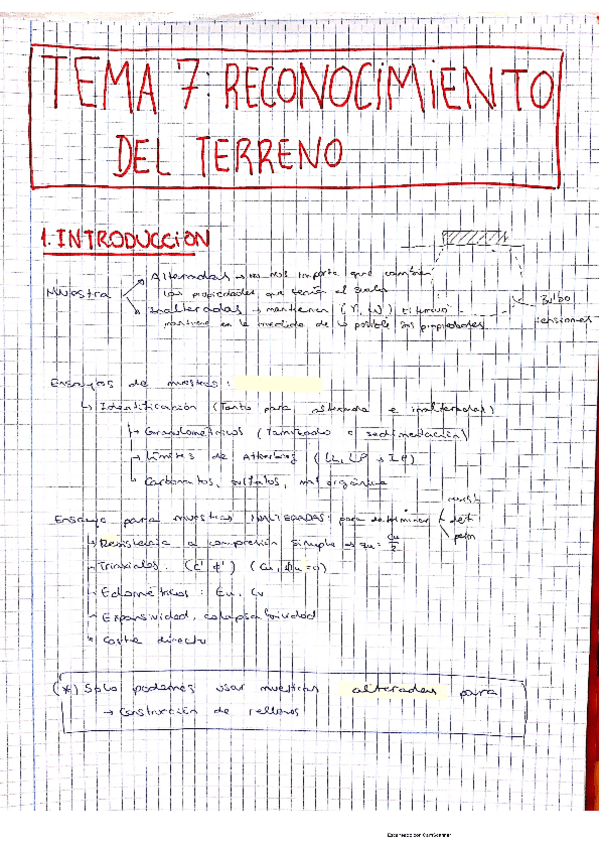 TEMA 7: RECONOCIMIENTO
DEL TERRENO
1. INTRODUCCIÓN
Muestra
Alteradas → no nos importa que cambien
las propiedades que tenían el suelo
Inalteradas → mantienen (γ, ω)
mantiene en la medida de lo posible sus propiedades
Bulbo
tensiones
Ensayos de muestras:
↳ Identificación (Tanto para alterada e inalteradas)
→ Granulométricos (Tamizado e sedimentación)
→ Límites de Atterberg (LL, LP → IP)
↳ Carbonatos, sulfatos, mat orgánica
Ensayo para muestras INALTERADAS: para determinar
resist
def
perm
Resistencia a compresión simple →
- Triaxiales (c' φ') (Cu, φu=0)
- Edométricos:
- Expansividad, colapsabilidad
* Corte directo
(*) Solo podemos usar muestras alteradas para
→ Construcción de rellenos
Escaneado con CamScanner